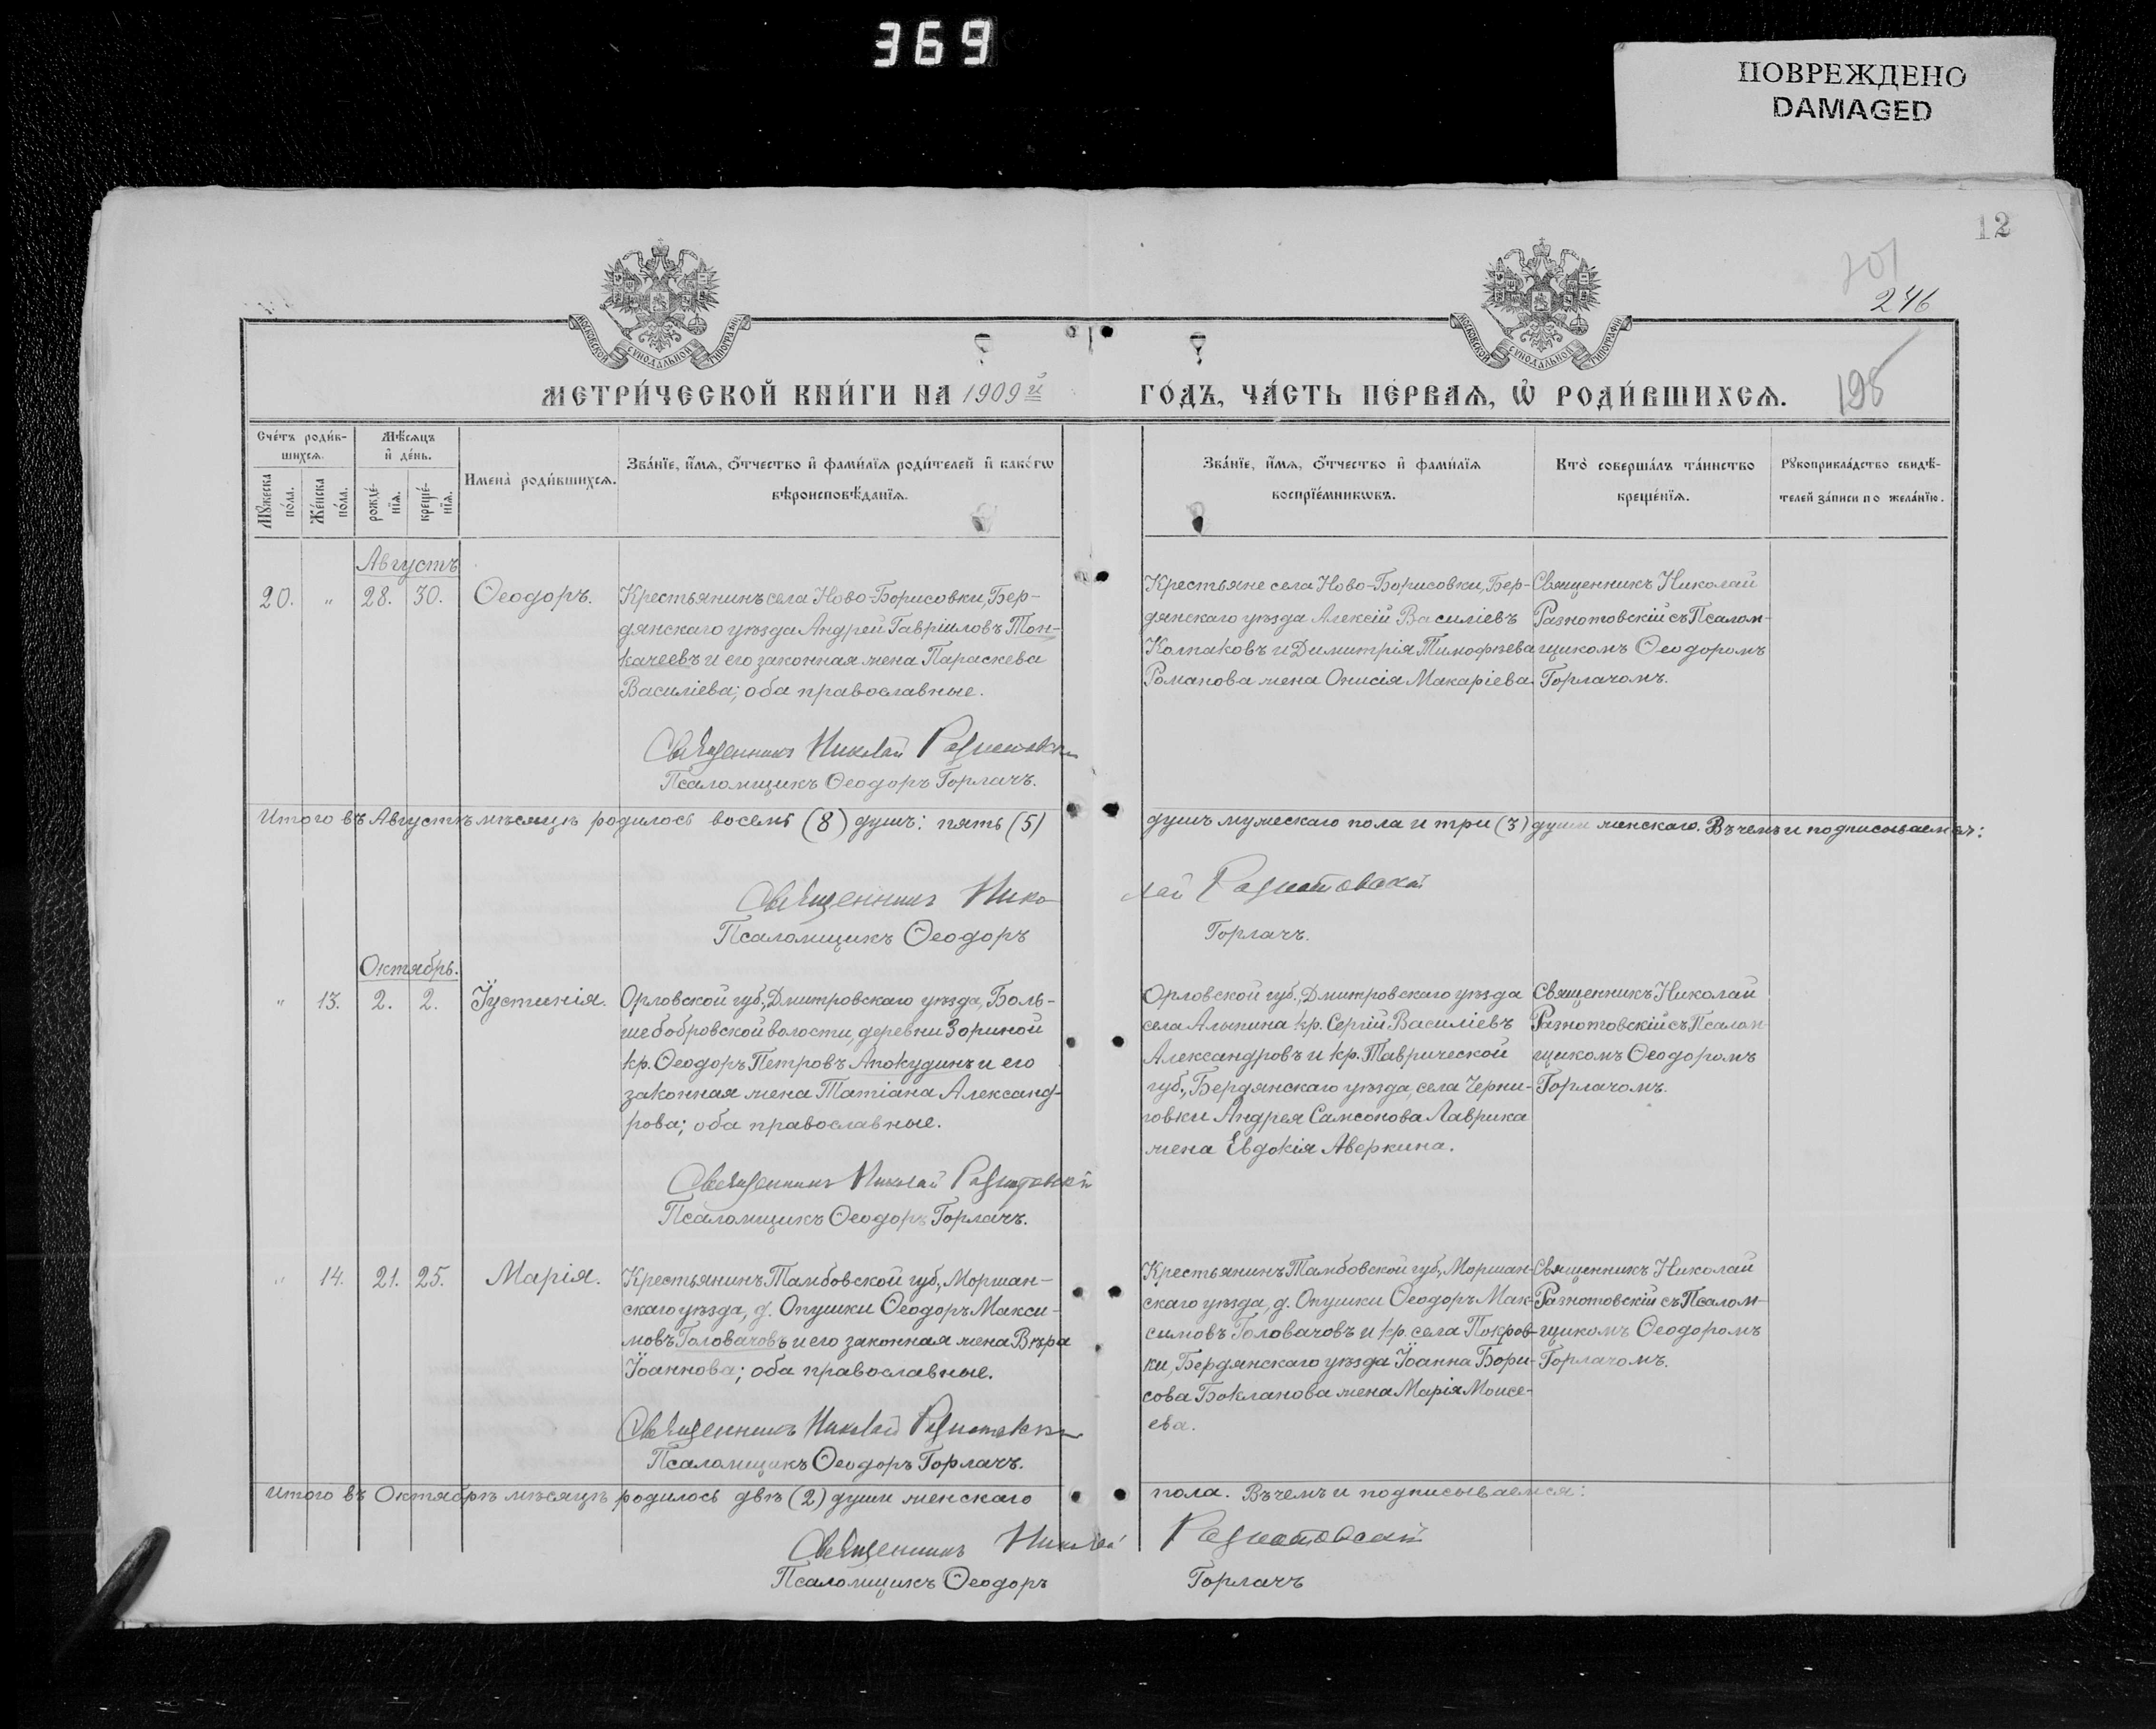 369
ПОВРЕЖДЕНО
DAMAGED
12
201
246
195
МОСКОВСКОЙ СУНОДАЛЬНОЙ ТИПОГРАФІИ
МОСКОВСКОЙ СУНОДАЛЬНОЙ ТИПОГРАФІИ
МЕТРИ́ЧЕСКОЙ КНИ́ГИ НА 1909й
ГО́ДЪ, ЧА́СТЬ ПЕ́РВАѦ, Ѽ РОДИ́ВШИХСѦ.
Сче́тъ роди́в-
шихсѧ.
Мꙋ́жеска по́ла.
Же́нска по́ла.
Мѣ́сѧцъ
и҆ де́нь.
рожде́-нїѧ.
креще́-нїѧ.
И҆мена̀ роди́вшихсѧ.
Зва́нїе, и҆́мѧ, ѻ҆́тчество и҆ фами́лїѧ роди́телей и҆ како́гѡ
вѣроисповѣ́данїѧ.
Зва́нїе, и҆́мѧ, ѻ҆́тчество и҆ фами́лїѧ
воспрїе́мникѡвъ.
Кто̀ соверша́лъ та́инство
креще́нїѧ.
Рꙋкоприкла́дство свидѣ́-
телей за́писи по жела́нїю.
Августъ
20. " 28. 30. Ѳеодоръ.
Крестьянинъ села Ново-Борисовки, Бер-
дянскаго уѣзда Андрей Гавріиловъ Тон-
качеевъ и его законная жена Параскева
Василіева; оба православные.
Священникъ Николай Разнотовскій
Псаломщикъ Ѳеодоръ Горлачъ.
Крестьяне села Ново-Борисовки, Бер-
дянскаго уѣзда Алексій Василіевъ
Колпаковъ и Димитрія Тимофѣева
Романова жена Онисія Макаріева.
Священникъ Николай
Разнотовскій съ Псалом-
щикомъ Ѳеодоромъ
Горлачомъ.
Итого въ Августѣ мѣсяцѣ родилось восемь (8) душъ: пять (5)
душъ мужескаго пола и три (3) души женскаго. Въ чемъ и подписываемся:
Священникъ Нико
лай Разнотовскій
Псаломщикъ Ѳеодоръ
Горлачъ.
Октябрь.
" 13. 2. 2. Іустинія.
Орловской губ., Дмитровскаго уѣзда, Боль-
шебобровской волости, деревни Зориной
кр. Ѳеодоръ Петровъ Апокудинъ и его
законная жена Татіана Александ-
рова; оба православные.
Священникъ Николай Разнотовскій
Псаломщикъ Ѳеодоръ Горлачъ.
Орловской губ., Дмитровскаго уѣзда
села Алыпина кр. Сергій Василіевъ
Александровъ и кр. Таврической
губ., Бердянскаго уѣзда, села Черни-
говки Андрея Самсонова Лаврика
жена Евдокія Аверкина.
Священникъ Николай
Разнотовскій съ Псалом-
щикомъ Ѳеодоромъ
Горлачомъ.
" 14. 21. 25. Марія.
Крестьянинъ Тамбовской губ., Моршан-
скаго уѣзда, д. Опушки Ѳеодоръ Макси-
мовъ Головачовъ и его законная жена Вѣра
Іоаннова; оба православные.
Священникъ Николай Разнотовскій
Псаломщикъ Ѳеодоръ Горлачъ.
Крестьянинъ Тамбовской губ., Моршан-
скаго уѣзда, д. Опушки Ѳеодоръ Мак-
симовъ Головачовъ и кр. села Покров-
ки, Бердянскаго уѣзда Іоанна Бори-
сова Бокланова жена Марія Моисе-
ева.
Священникъ Николай
Разнотовскій съ Псалом-
щикомъ Ѳеодоромъ
Горлачомъ.
Итого въ Октябрѣ мѣсяцѣ родилось двѣ (2) души женскаго
пола. Въ чемъ и подписываемся:
Священникъ Николай
Разнотовскій
Псаломщикъ Ѳеодоръ
Горлачъ